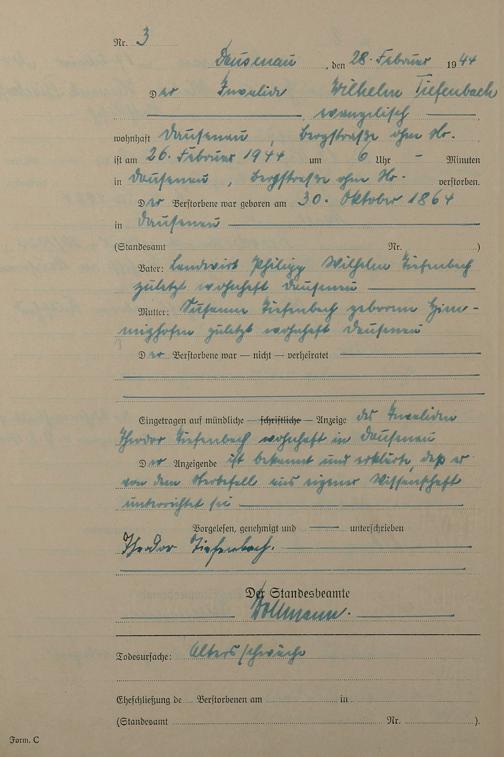 Nr. 3
Dausenau, den 28. Februar 1944
Der Invalide Wilhelm Tiefenbach
, evangelisch
wohnhaft Dausenau, Bergstraße ohne Nr.
ist am 26. Februar 1944 um 6 Uhr - Minuten
in Dausenau, Bergstraße ohne Nr. verstorben.
Der Verstorbene war geboren am 30. Oktober 1864
in Dausenau
(Standesamt Nr. )
Vater: Landwirt Philipp Wilhelm Tiefenbach
zuletzt wohnhaft Dausenau
Mutter: Susanne Tiefenbach geborene Him-
mighofen zuletzt wohnhaft Dausenau
Der Verstorbene war — nicht — verheiratet
Eingetragen auf mündliche — schriftliche — Anzeige des Invaliden
Theodor Tiefenbach wohnhaft in Dausenau
Der Anzeigende ist bekannt und erklärte, daß er
von dem Sterbefall aus eigener Wissenschaft
unterrichtet sei
Vorgelesen, genehmigt und unterschrieben
Theodor Tiefenbach.
Der Standesbeamte
Vollmann.
Todesursache: Altersschwäche
Eheschließung de Verstorbenen am in
(Standesamt Nr. ).
Form. C